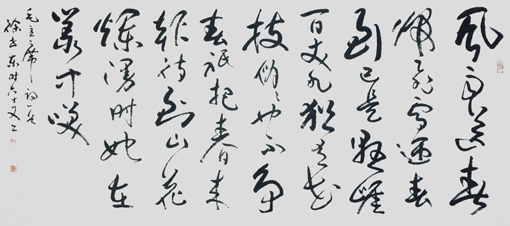 風雨送春
歸飛雪迎春
到已是懸崖
百丈冰猶有花
枝俏々也不争
春祇把春来
報待到山花
爛漫時她在
叢中笑
毛主席词一首
徐东时六十又二